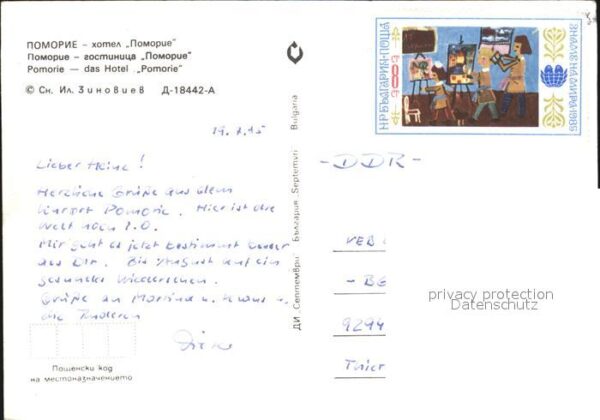 ПОМОРИЕ – хотел „Поморие"
Поморие – гостиница „Поморие"
Pomorie — das Hotel „Pomorie"
© Сн. Ил. Зиновиев Д-18442-А
ДИ „Септември" България Septemvri Bulgaria
НР БЪЛГАРИЯ·ПОЩА
8
ЗНАМЕ НА МИРА·1985
Lieber Heinz!
Herzliche Grüße aus dem
Kurort Pomorie. Hier ist die
Welt noch i.O.
Mir geht es jetzt bestimmt besser
als Dir. Bis August auf ein
gesundes Wiedersehen.
Grüße an Martina u. Klaus u.
die Anderen
-DDR-
VEB
- BE
9294
privacy protection
Datenschutz
Пощенски код
на местоназначението